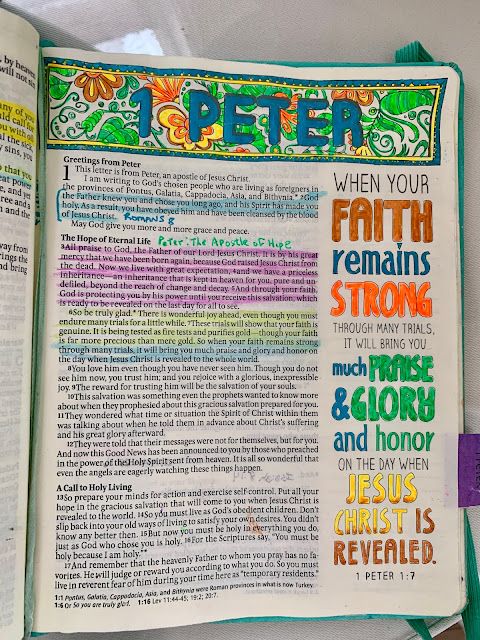 , by heaven
will not sin
any of you
the sick,
sins, you
that you
great power
and the
away from
rings the
and bring
1 PETER
Greetings from Peter
1 This letter is from Peter, an apostle of Jesus Christ.
I am writing to God's chosen people who are living as foreigners in
the provinces of Pontus, Galatia, Cappadocia, Asia, and Bithynia.* 2God
the Father knew you and chose you long ago, and his Spirit has made you
holy. As a result, you have obeyed him and have been cleansed by the blood
of Jesus Christ. Romans 8
May God give you more and more grace and peace.
The Hope of Eternal Life Peter: The Apostle of Hope
3All praise to God, the Father of our Lord Jesus Christ. It is by his great
mercy that we have been born again, because God raised Jesus Christ from
the dead. Now we live with great expectation, 4and we have a priceless
inheritance—an inheritance that is kept in heaven for you, pure and un-
defiled, beyond the reach of change and decay. 5And through your faith,
God is protecting you by his power until you receive this salvation, which
is ready to be revealed on the last day for all to see.
6So be truly glad.* There is wonderful joy ahead, even though you must
endure many trials for a little while. 7These trials will show that your faith is
genuine. It is being tested as fire tests and purifies gold—though your faith
is far more precious than mere gold. So when your faith remains strong
through many trials, it will bring you much praise and glory and honor on
the day when Jesus Christ is revealed to the whole world.
8You love him even though you have never seen him. Though you do not
see him now, you trust him; and you rejoice with a glorious, inexpressible
joy. 9The reward for trusting him will be the salvation of your souls.
10This salvation was something even the prophets wanted to know more
about when they prophesied about this gracious salvation prepared for you.
11They wondered what time or situation the Spirit of Christ within them
was talking about when he told them in advance about Christ's suffering
and his great glory afterward.
12They were told that their messages were not for themselves, but for you.
And now this Good News has been announced to you by those who preached
in the power of the Holy Spirit sent from heaven. It is all so wonderful that
even the angels are eagerly watching these things happen.
A Call to Holy Living
13So prepare your minds for action and exercise self-control. Put all your
hope in the gracious salvation that will come to you when Jesus Christ is
revealed to the world. 14So you must live as God's obedient children. Don't
slip back into your old ways of living to satisfy your own desires. You didn't
know any better then. 15But now you must be holy in everything you do,
just as God who chose you is holy. 16For the Scriptures say, "You must be
holy because I am holy."*
17And remember that the heavenly Father to whom you pray has no fa-
vorites. He will judge or reward you according to what you do. So you must
live in reverent fear of him during your time here as "temporary residents."
1:1 Pontus, Galatia, Cappadocia, Asia, and Bithynia were Roman provinces in what is now Turkey.
1:6 Or So you are truly glad. 1:16 Lev 11:44-45; 19:2; 20:7.
WHEN YOUR
FAITH
remains
STRONG
THROUGH MANY TRIALS,
IT WILL BRING YOU
much PRAISE
& GLORY
and honor
ON THE DAY WHEN
JESUS
CHRIST IS
REVEALED.
1 PETER 1:7